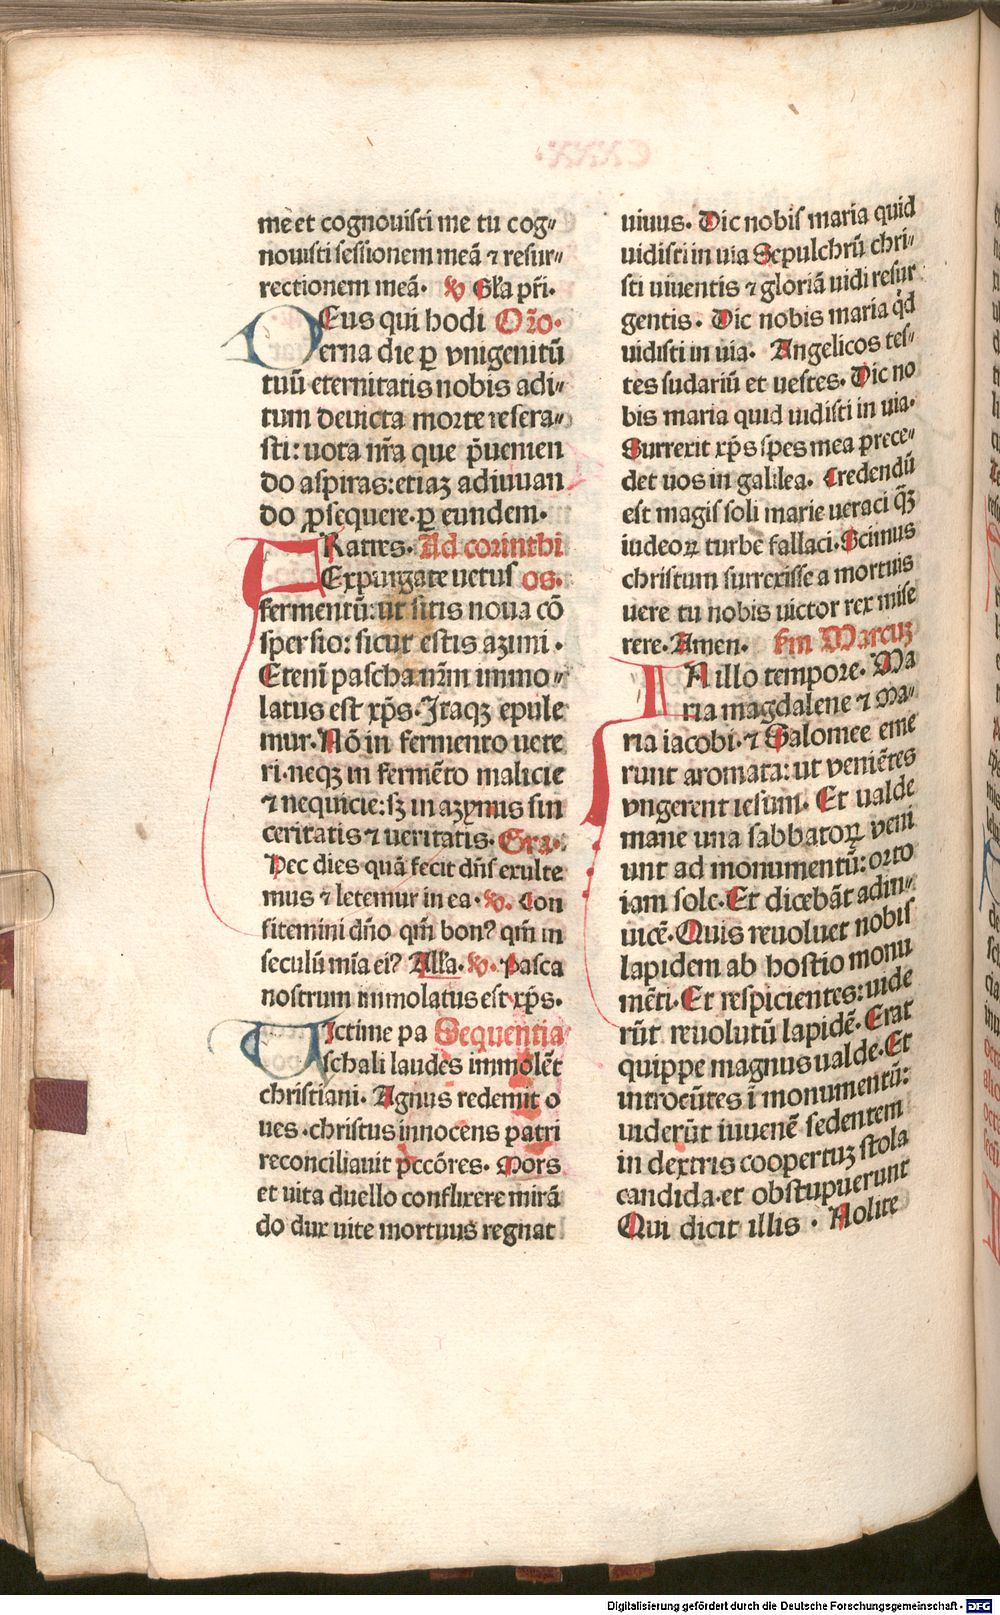 me et cognouisti me tu cog⸗
nouisti sessionem meā ⁊ resur⸗
rectionem meā. V Gl'a pr̄i.
DEus qui hodi Or̄o.
erna die ꝑ vnigenitū
tuū eternitatis nobis adi⸗
tum deuicta morte resera⸗
sti: uota nr̄a que p̄uenien
do aspiras: etiaz adiuuan
do ꝓsequere. ꝑ eundem.
FRatres. Ad corinthi
Expurgate uetus os.
fermentū: ut sitis noua cō
spersio: sicut estis azimi.
Etenī pascha nr̄m immo⸗
latus est xp̄s. Itaqꝫ epule
mur. Nō in fermento uete
ri. neqꝫ in fermēto malicie
⁊ nequicie: sꝫ in azymis sin
ceritatis ⁊ ueritatis. Gra.
Hec dies quā fecit dn̄s exulte
mus ⁊ letemur in ea. V. Con
fitemini dn̄o qm̄ bon? qm̄ in
seculū mīa ei? All'a. V. Pasca
nostrum immolatus est xp̄s.
UIctime pa Sequentia
schali laudes immolēt
christiani. Agnus redemit o
ues. christus innocens patri
reconciliauit pccōres. Mors
et uita duello conflixere mirā
do dux uite mortuus regnat
uiuus. Dic nobis maria quid
uidisti in uia Sepulchrū chri⸗
sti uiuentis ⁊ gloriā uidi resur
gentis. Dic nobis maria qd̓
uidisti in uia. Angelicos tes⸗
tes sudariū et uestes. Dic no
bis maria quid uidisti in uia.
Surrexit xp̄s spes mea p̄rece⸗
det uos in galilea. Credendū
est magis soli marie ueraci qꝫ̄
iudeoꝝ turbe fallaci. Scimus
christum surrexisse a mortuis
uere tu nobis uictor rex mise
rere. Amen. km Marcuꝫ
IN illo tempore. Ma
ria magdalene ⁊ Ma⸗
ria iacobi. ⁊ Salomee eme
runt aromata: ut veniētes
vngerent iesum. Et ualde
mane una sabbatoꝝ veni
unt ad monumentū: orto
iam sole. Et dicebāt adin⸗
uicē. Quis reuoluet nobis
lapidem ab hostio monu
mēti. Et respicientes: uide
rūt reuolutū lapidē. Erat
quippe magnus ualde. Et
introeūtes ī monumentū:
uiderūt iuuenē sedentem
in dextris coopertuꝫ stola
candida. et obstupuerunt
Qui dicit illis. Nolite
Digitalisierung gefördert durch die Deutsche Forschungsgemeinschaft - DFG